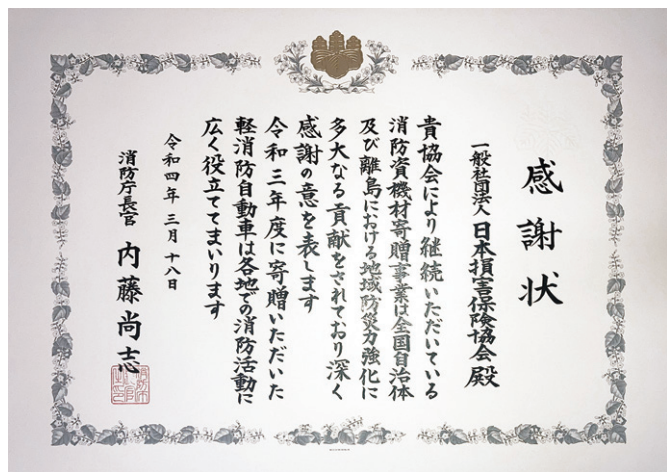 感謝状
一般社団法人 日本損害保険協会 殿
貴協会により継続いただいている
消防資機材寄贈事業は全国自治体
及び離島における地域防災力強化に
多大なる貢献をされており深く
感謝の意を表します
令和三年度に寄贈いただいた
軽消防自動車は各地での消防活動に
広く役立ててまいります
令和四年三月十八日
消防庁長官 内藤尚志